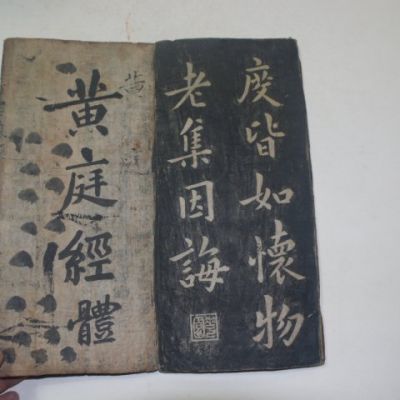 度皆如懷物
老集因誨
黃庭經體